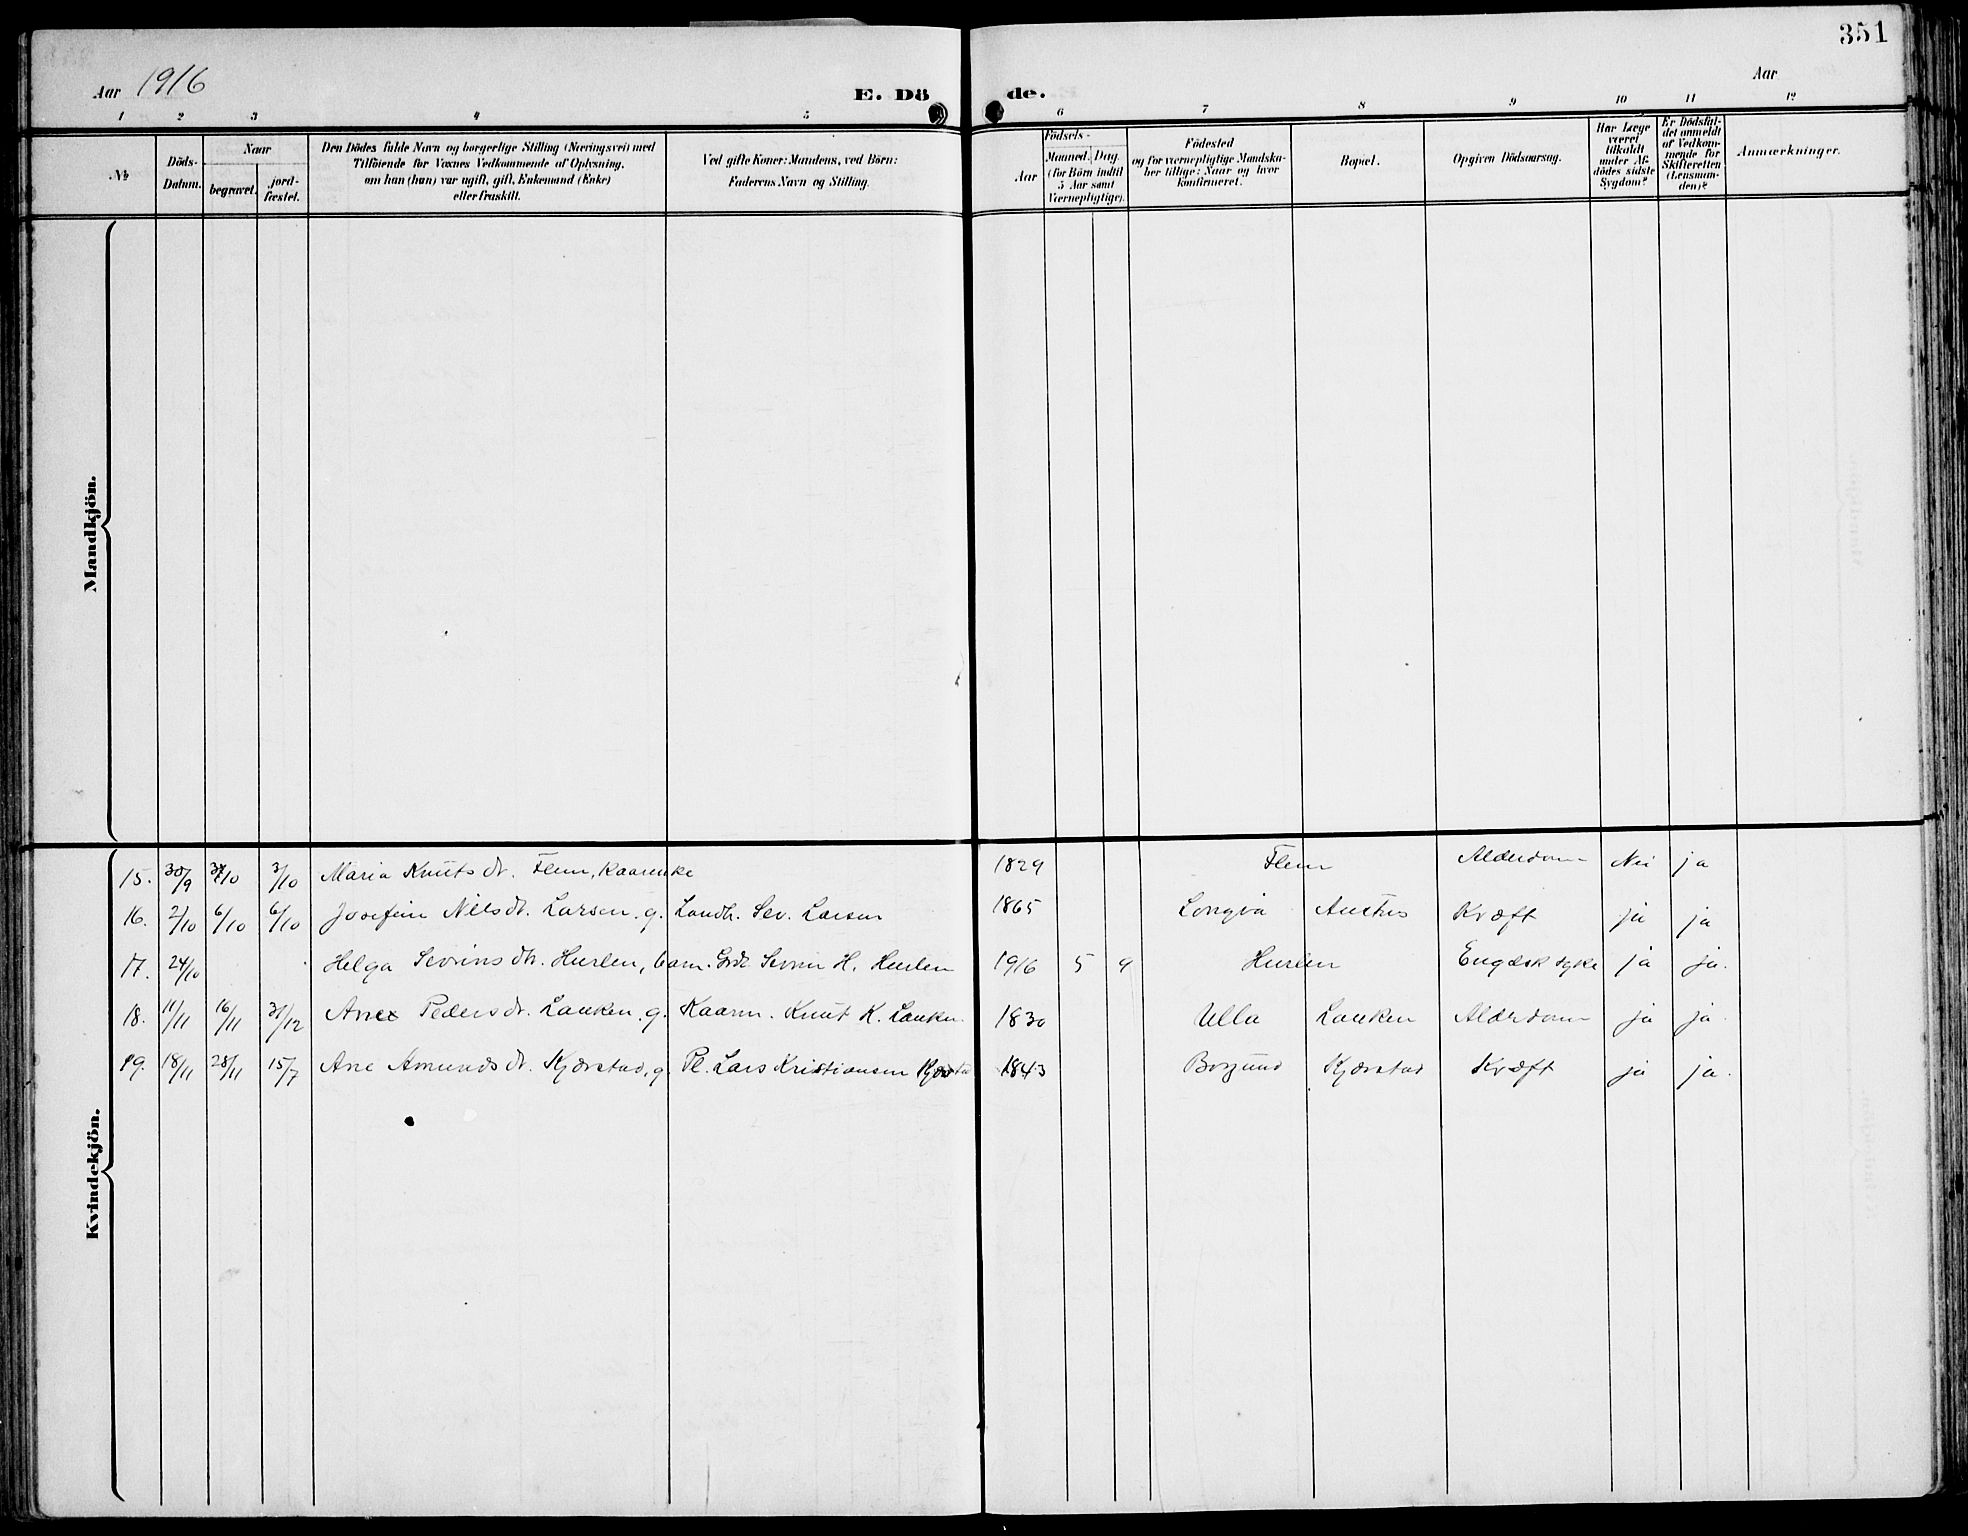 351
Aar 1916 E. Dö de. Aar
1 2 3 4 5 6 7 8 9 10 11 12
№
Döds-Datum.
Naar
begravet.
jord-fæstet.
Den Dödes fulde Navn og borgerlige Stilling (Næringsvei) med
Tilföiende for Voxnes Vedkommende af Oplysning,
om han (hun) var ugift, gift, Enkemand (Enke)
eller fraskilt.
Ved gifte Koner: Mandens, ved Börn:
Faderens Navn og Stilling.
Födsels-
Aar
Maaned. Dag.
(for Börn indtil
5 Aar samt
Værnepligtige).
Födested
og for værnepligtige Mandska-
ber tillige: Naar og hvor
konfirmeret.
Bopæl.
Opgiven Dödsaarsag.
Har Læge
været
tilkaldt
under Af-
dödes sidste
Sygdom?
Er Dödsfal-
det anmeldt
af Vedkom-
mende for
Skifteretten
(Lensman-
den)?
Anmærkninger.
Mandkjön.
Kvindekjön.
15. 30/9 3/10 3/10 Maria Knuts dr. Flem, Kaarenke 1829 Flem Alderdom Nei ja
16. 2/10 6/10 6/10 Josefine Nils dr. Larsen. g. Landh. Sev. Larsen 1865 Longva Austnes Kræft ja ja
17. 24/10 Helga Severins dtr. Hurlen, barn. Grdr. Severin H. Hurlen 1916 5 9 Hurlen Engelsk syke ja ja.
18. 11/11 16/11 31/12 Ane Peders dr. Lauken. g. Kaarm. Knut K. Lauken 1830 Ulla Lauken Alderdom ja ja.
19. 18/11 28/11 15/7 Ane Amunds dr. Kjærstad, g. Pl. Lars Kristiansen Kjærstad 1843 Borgund Kjærstad Kræft ja ja.